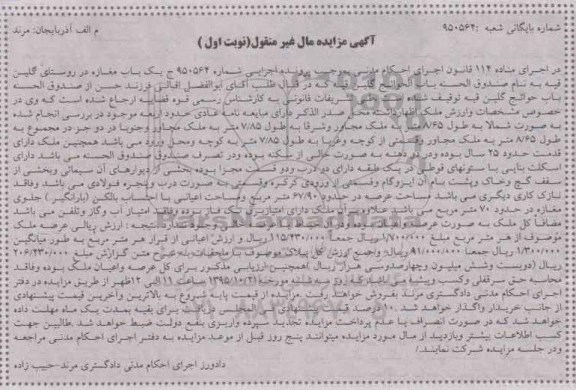 شماره بایگانی شعبه :۹۵۰۵۶۴
م الف آذربایجان: مرند
آگهی مزایده مال غیر منقول(نوبت اول )
در اجرای ماده ۱۱۴ قانون اجرای احکام مدنی پرونده اجرایی شماره ۹۵۰۵۶۴ ج یک باب مغازه در روستای گلین
قیه به نام صندوق الحسنه باب الحوائج گلین قیه که در قبال طلب آقای ابوالفضل اقبالی فرزند حسن از صندوق الحسنه
باب حوائج گلین قیه توقیف به کارشناس رسمی قوه قضائیه ارجاع شده است که وی در
خصوص مشخصات وارزش ملک اظهار محل صدر الذکر دارای مبایعه نامه عادی حدود اربعه موجود در بررسی انجام شده
به صورت شمالا به طول ۸/۶۵ به ملک مجاور وشرقا به طول ۷/۸۵ متر به ملک مجاور وجنوبا در دو جز در مجموع به
طول ۸/۶۵ متر به ملک مجاور وقسمتی از کوچه وغربا به طول ۷/۸۵ متر به کوچه ومحل ورود می باشد همچنین ملک دارای
قدمت حدود ۲۵ سال بوده ودر وقفه به صورت خالی از سکنه بوده ودر تصرف صندوق الحسنه می باشد دارای
اسکلت بنایی با ستونهای فوطی در یک طبقه دارای دو درب ودو قسمت مجزا بوده بخشی از دیوارهای آن سیمانی وبخشی از
سقف گچ وخاک وپشت بام آن ایزوگام وقسمتی از ورودی کرکره وقسمتی به صورت درب وپنجره فولادی می باشد وفاقد
نازک کاری دیگری می باشد مساحت عرصه در حدود ۶۷/۹۰ متر مربع ومساحت اعیانی با احتساب بالکن (بارانگیر ) جلوی
مغازه در حدود ۷۰ متر مربع می باشد دارای امتیاز برق بوده وفاقد امتیاز آب وگاز وتلفن می باشد
مضافا کل ملک به صورت عرصه نتیجه : ارزش ریالی عرصه ملک
موصوف از هر متر مربع مبلغ ۱/۷۰۰/۰۰۰ ریال جمعا ۱۱۵/۴۳۰/۰۰۰ ریال و ارزش اعیانی از قرار هر متر مربع به طور میانگین
۱/۳۰۰/۰۰۰ ریال جمعا ۹۱/۰۰۰/۰۰۰ ریال وجمع ارزش کل پلاک موصوف با ملحقات به شرح متن گزارش مبلغ ۲۰۶/۴۳۰/۰۰۰
ریال (دویست وشش میلیون وچهارصدوسی هزار ریال )همچنین ارزیابی مذکور برای کل عرصه واعیان ملک بوده وفاقد
محاسبه حق سرقفلی وکسب وپیشه می باشد که روز سه شنبه مورخه ۱۳۹۵/ ساعت الی ۱۲ظهر از طریق مزایده در دفتر
اجرای احکام مدنی دادگستری مرند بفروش خواهد رسید مزایده از قیمت پایه شروع به بالاترین وآخرین قیمت پیشنهادی
از جانب خریدار واگذار خواهد شد ۱۰درصد قیمت المجلس دریافت برای بقیه بمدت یک ماه مهلت داده
خواهد شد که در صورت انصراف یا عدم پرداخت مزایده تجدید سپرده واریزی بنفع دولت ضبط خواهد شد .طالبین جهت
کسب اطلاعات بیشتر وبازدید از مال مورد مزایده میتوانند پنج روز قبل از موعد مزایده به دفتر اجرای احکام مدنی مراجعه
ودر جلسه مزایده شرکت نمایند./
دادورز اجرای احکام مدنی دادگستری مرند-حبیب زاده